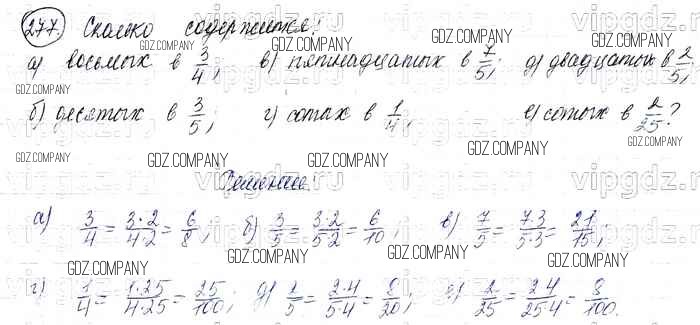 277. Сколько содержится:
а) восьмых в 3/4; в) пятнадцатых в 7/5; д) двадцатых в 2/5;
б) десятых в 3/5; г) сотых в 1/4; е) сотых в 2/25?
Решение:
а) 3/4 = 3·2/4·2 = 6/8; б) 3/5 = 3·2/5·2 = 6/10; в) 7/5 = 7·3/5·3 = 21/15;
г) 1/4 = 1·25/4·25 = 25/100; д) 2/5 = 2·4/5·4 = 8/20; е) 2/25 = 2·4/25·4 = 8/100.
GDZ.COMPANY
vipgdz.ru